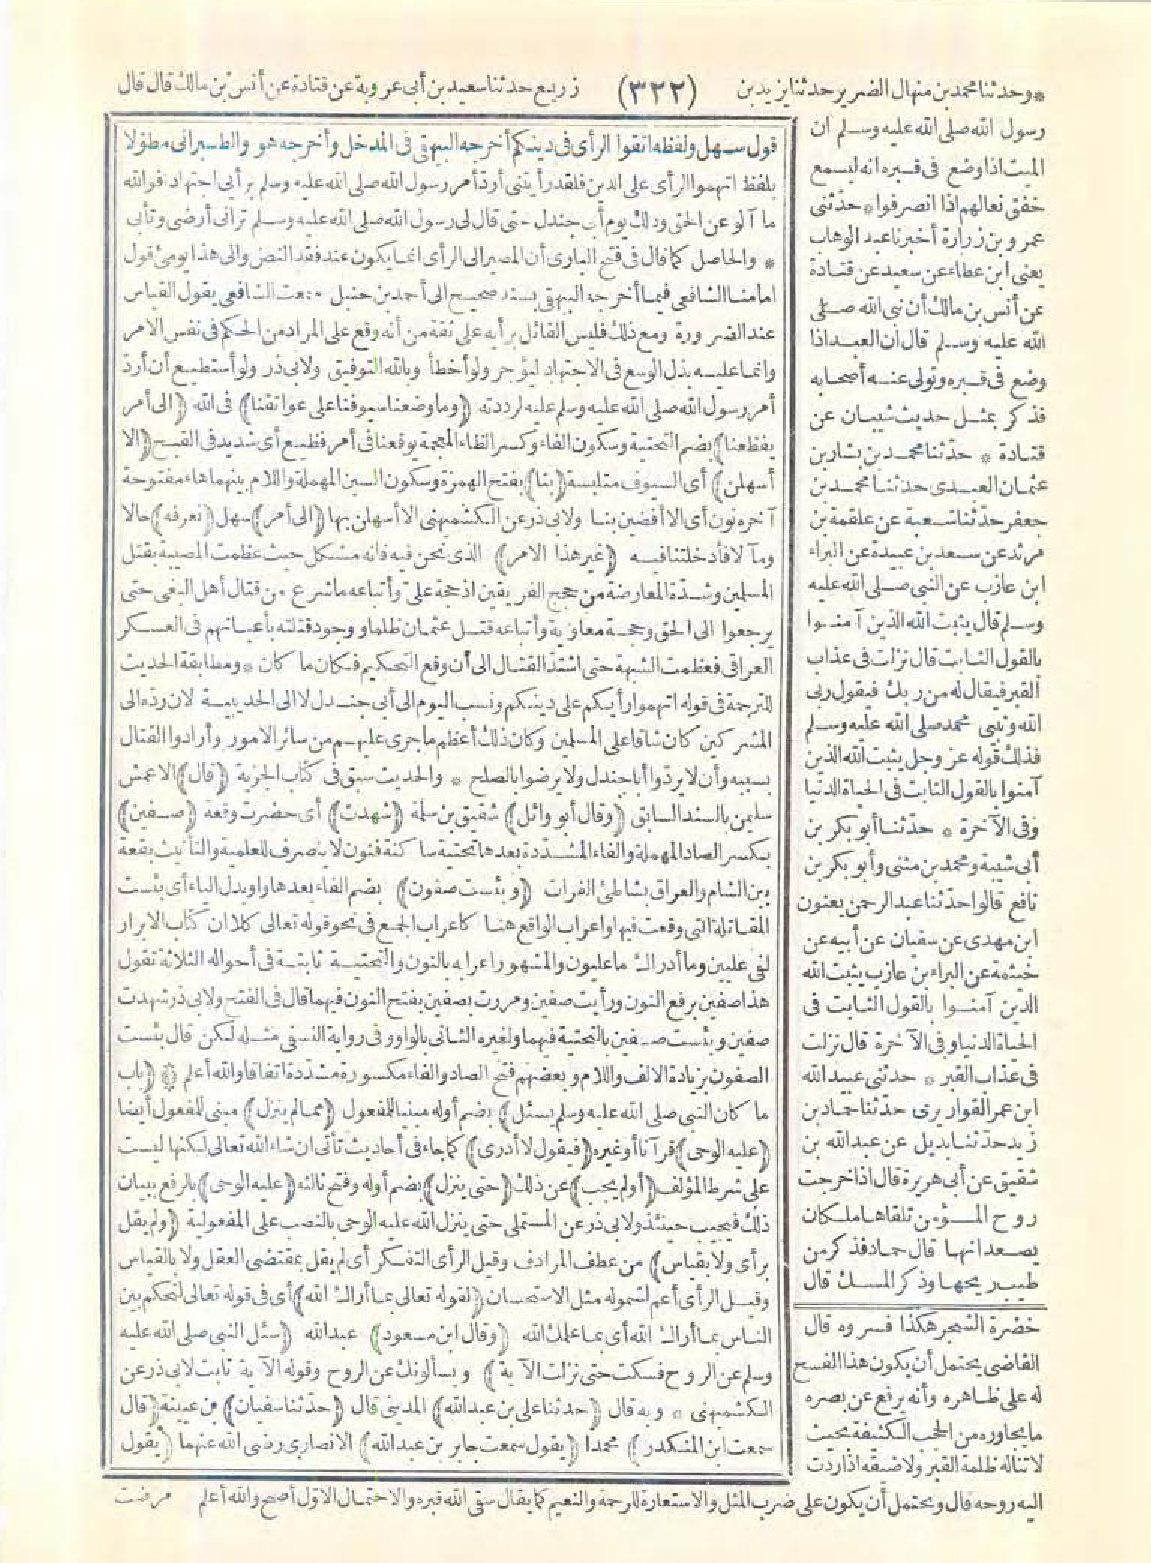 * وحدثنا محمد بن منهال الضرير حدثنا يزيد بن
(٣٢٢)
زريع حدثنا سعيد بن أبى عروبة عن قتادة عن أنس بن مالك قال قال
رسول الله صلى الله عليه وسلم ان
الميت اذا وضع فى قبره انه ليسمع
خفق نعالهم اذا انصرفوا * حدثنى
عمرو بن زرارة أخبرنا عبد الوهاب
يعنى ابن عطاء عن سعيد عن قتادة
عن أنس بن مالك أن نبى الله صلى
الله عليه وسلم قال ان العبد اذا
وضع فى قبره وتولى عنه أصحابه
فذكر بمثل حديث شيبان عن
قتادة * حدثنا محمد بن بشار بن
عثمان العبدى حدثنا محمد بن
جعفر حدثنا شعبة عن علقمة بن
مرثد عن سعد بن عبيدة عن البراء
ابن عازب عن النبى صلى الله عليه
وسلم قال يثبت الله الذين آمنوا
بالقول الثابت قال نزلت فى عذاب
القبر فيقال له من ربك فيقول ربى
الله ونبيى محمد صلى الله عليه وسلم
فذلك قوله عز وجل يثبت الله الذين
آمنوا بالقول الثابت فى الحياة الدنيا
وفى الآخرة * حدثنا أبو بكر بن
أبى شيبة ومحمد بن مثنى وأبو بكر بن
نافع قالوا حدثنا عبد الرحمن يعنون
ابن مهدى عن سفيان عن أبيه عن
خيثمة عن البراء بن عازب يثبت الله
الذين آمنوا بالقول الثابت فى
الحياة الدنيا وفى الآخرة قال نزلت
فى عذاب القبر * حدثنى عبيد الله
ابن عمر القواريرى حدثنا حماد بن
زيد حدثنا بديل عن عبد الله بن
شقيق عن أبى هريرة قال اذا خرجت
روح المؤمن تلقاها ملكان
يصعدانها قال حماد فذكر من
طيب ريحها وذكر المسك قال
خضرة الشجر هكذا فسروه قال
القاضى يحتمل أن يكون هذا الفسح
له على ظاهره وأنه يرفع عن بصره
ما يجاوره من الحجب الكثيفة بحيث
لا تناله ظلمة القبر ولا ضيقه اذا ردت
اليه روحه قال ويحتمل أن يكون على ضرب المثل والاستعارة للرحمة والنعيم كما يقال سقى الله قبره والاحتمال الاول أصح والله أعلم
قول سهل ولفظه اتقوا الرأى فى دينكم أخرجه البيهقى فى المدخل وأخرجه هو والطبرانى مطولا
بلفظ اتهموا الرأى على الدين فلقد رأيتنى أرد أمر رسول الله صلى الله عليه وسلم برأيى اجتهادا فوالله
ما آلو عن الحق وذلك يوم أبى جندل حتى قال لى رسول الله صلى الله عليه وسلم ترانى أرضى وتأبى
* والحاصل كما قال فى فتح البارى أن المصير الى الرأى انما يكون عند فقد النص والى هذا يومئ قول
امامنا الشافعى فيما أخرجه البيهقى بسند صحيح الى أحمد بن حنبل سمعت الشافعى يقول القياس
عند الضرورة ومع ذلك فليس القائل برأيه على ثقة من أنه وقع على المراد من الحكم فى نفس الامر
وانما عليه بذل الوسع فى الاجتهاد ليؤجر ولو أخطأ وبالله التوفيق ولابى ذر ولو أستطيع أن أرد
أمر رسول الله صلى الله عليه وسلم عليه لرددته (وما وضعنا سيوفنا على عواتقنا) فى الله (الى أمر
يفظعنا) بضم التحتية وسكون الفاء وكسر الظاء المعجمة يوقعنا فى أمر فظيع أى شديد فى القبح (الا
أسهلن) أى السيوف متلبسة (بنا) بفتح الهمزة وسكون السين المهملة واللام بينهما هاء مفتوحة
آخره نون أى الا أفضين بنا ولابى ذر عن الكشميهنى الا أسهلن بها (الى أمر) سهل (نعرفه) حالا
ومآلا فأدخلتنا فيه (غير هذا الامر) الذى نحن فيه فانه مشكل حيث عظمت المصيبة بقتل
المسلمين وشدة المعارضة من حجج الفريقين اذ حجة على وأتباعه ما شرع من قتال أهل البغى حتى
يرجعوا الى الحق وحجة معاوية وأتباعه قتل عثمان ظلما ووجود قتلته بأعيانهم فى العسكر
العراقى فعظمت الشبهة حتى اشتد القتال الى أن وقع التحكيم فكان ما كان * ومطابقة الحديث
للترجمة فى قوله اتهموا رأيكم على دينكم ونسب اليوم الى أبى جندل لا الى الحديبية لان رده الى
المشركين كان شاقا على المسلمين وكان ذلك أعظم ما جرى عليهم من سائر الامور وأرادوا القتال
بسببه وأن لا يردوا أبا جندل ولا يرضوا بالصلح * والحديث سبق فى كتاب الجزية (قال) الاعمش
سليمن بالسند السابق (وقال أبو وائل) شقيق بن سلمة (شهدت) أى حضرت وقعة (صفين)
بكسر الصاد المهملة والفاء المشددة بعدها تحتية ساكنة فنون لا ينصرف للعلمية والتأنيث بقعة
بين الشام والعراق بشاطئ الفرات (وبئست صفون) بضم الفاء بعدها واو بدل الياء أى بئست
المقاتلة التى وقعت فيها واعراب الواقع هنا كاعراب الجمع فى نحو قوله تعالى كلا ان كتاب الابرار
لفى عليين وما أدراك ما عليون والمشهور اعرابه بالنون والتحتية ثابتة فى أحواله الثلاثة تقول
هذا صفين برفع النون ورأيت صفين ومررت بصفين بفتح النون فيهما قال فى الفتح ولابى ذر شهدت
صفين وبئست صفين بالتحتية فيهما ولغيره الثانى بالواو وفى رواية النسفى مثله لكن قال بئست
الصفون بزيادة الالف واللام وبعضهم فتح الصاد والفاء مكسورة مشددة اتفاقا والله أعلم * (باب
ما كان النبى صلى الله عليه وسلم يسئل) بضم أوله مبنيا للمفعول (مما لم ينزل) مبنى للمفعول أيضا
(عليه الوحى) قرآنا أو غيره (فيقول لا أدرى) كما جاء فى أحاديث تأتى ان شاء الله تعالى لكنها ليست
على شرط المؤلف (أو لم يجب) عن ذلك (حتى ينزل) بضم أوله وفتح ثالثه (عليه الوحى) بالرفع ببيان
ذلك فيجيب حينئذ ولابى ذر عن المستملى حتى ينزل الله عليه الوحى بالنصب على المفعولية (ولم يقل
برأى ولا بقياس) من عطف المرادف وقيل الرأى التفكر أى لم يقل بمقتضى العقل ولا بالقياس
وقيل الرأى أعم لشموله مثل الاستحسان (لقوله تعالى بما أراك الله) أى فى قوله تعالى لتحكم بين
الناس بما أراك الله أى بما علمك الله (وقال ابن مسعود) عبد الله (سئل النبى صلى الله عليه
وسلم عن الروح فسكت حتى نزلت الآية) ويسألونك عن الروح وقوله الآية ثابت لابى ذر عن
الكشميهنى * وبه قال (حدثنا على بن عبد الله) المدينى قال (حدثنا سفيان) بن عيينة (قال
سمعت ابن المنكدر) محمدا (يقول سمعت جابر بن عبد الله) الانصارى رضى الله عنهما (يقول
مرضت